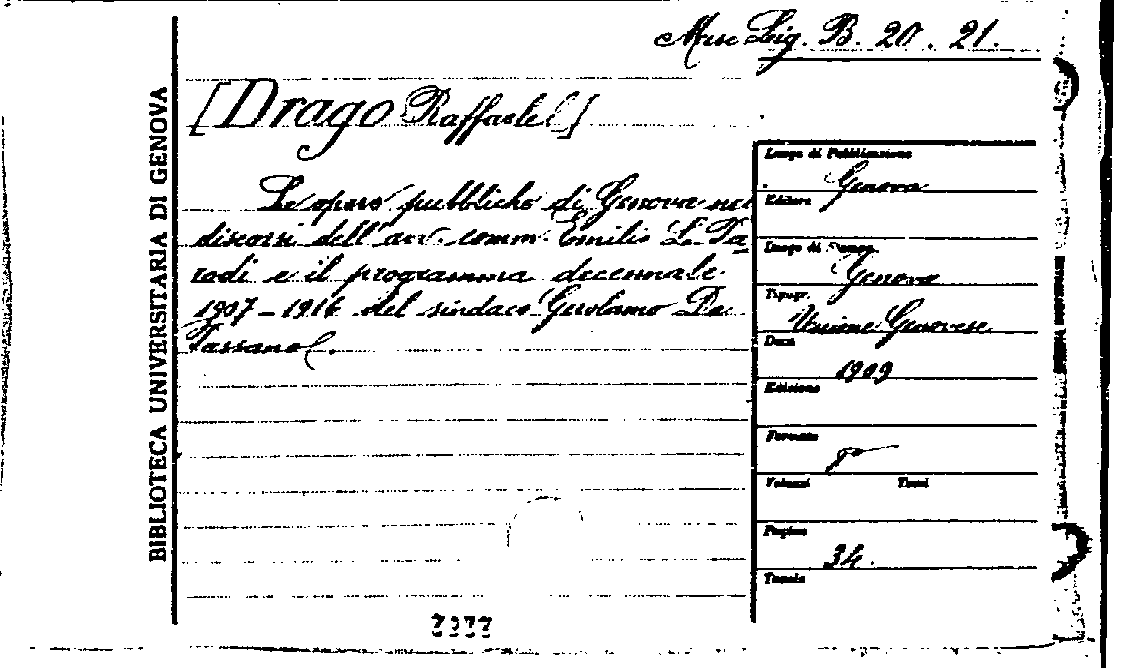 Misc Lig. B. 20. 21.
[Drago Raffaele]
Le opere pubbliche di Genova nei
discorsi dell'avv. comm. Emilio L. Pa
rodi e il programma decennale
1907-1916 del sindaco Gerolamo Da
Passano.
BIBLIOTECA UNIVERSITARIA DI GENOVA
Luogo di Pubblicazione
Genova
Editore
Luogo di Stampa
Genova
Tipogr.
Unione Genovese
Data
1909
Edizione
Formato
8°
Volumi Tomi
Pagine
34.
Tavole